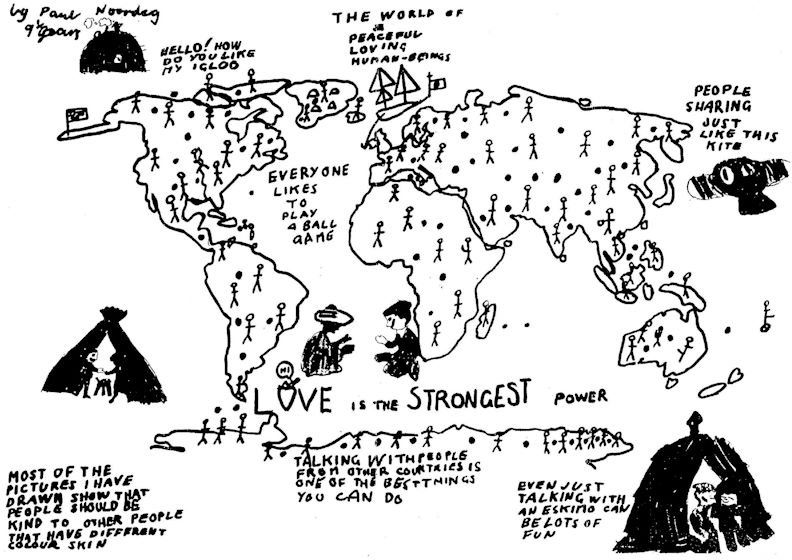 by Paul Noordeg
9½ years
HELLO! HOW
DO YOU LIKE
MY IGLOO
THE WORLD OF
PEACEFUL
LOVING
HUMAN-BEINGS
PEOPLE
SHARING
JUST
LIKE THIS
KITE
EVERYONE
LIKES
TO
PLAY
A BALL
GAME
HI
LOVE IS THE STRONGEST POWER
MOST OF THE
PICTURES I HAVE
DRAWN SHOW THAT
PEOPLE SHOULD BE
KIND TO OTHER PEOPLE
THAT HAVE DIFFERENT
COLOUR SKIN
TALKING WITH PEOPLE
FROM OTHER COUNTRIES IS
ONE OF THE BEST THINGS
YOU CAN DO
EVEN JUST
TALKING WITH
AN ESKIMO CAN
BE LOTS OF
FUN